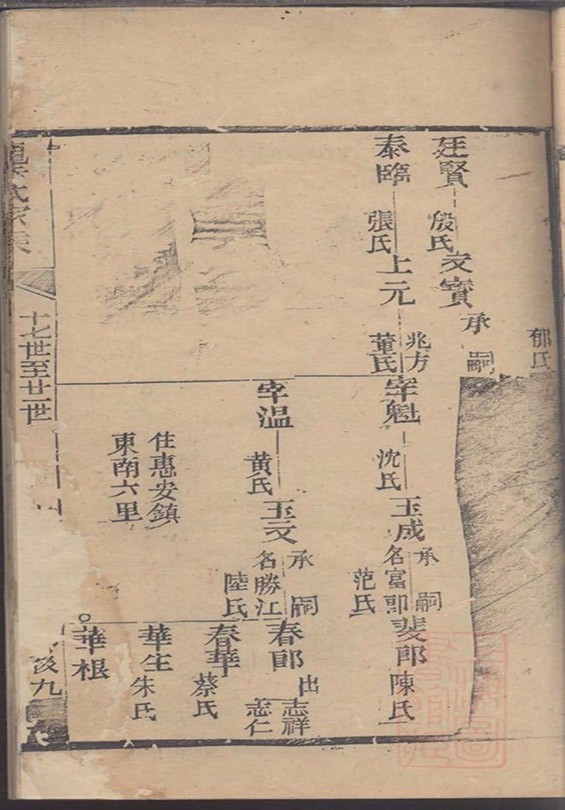 郁氏
廷賢
殷氏
文寶
承嗣
泰臨
張氏
上元
兆方
董氏
宰魁
沈氏
玉成
承嗣
名富郎
范氏
斐郎
陳氏
宰温
黄氏
玉文
承嗣
名勝江
陸氏
春郎
出
志祥
志仁
春華
蔡氏
住惠安鎮
東南六里
華生
朱氏
華根
十七世至廿一世
九